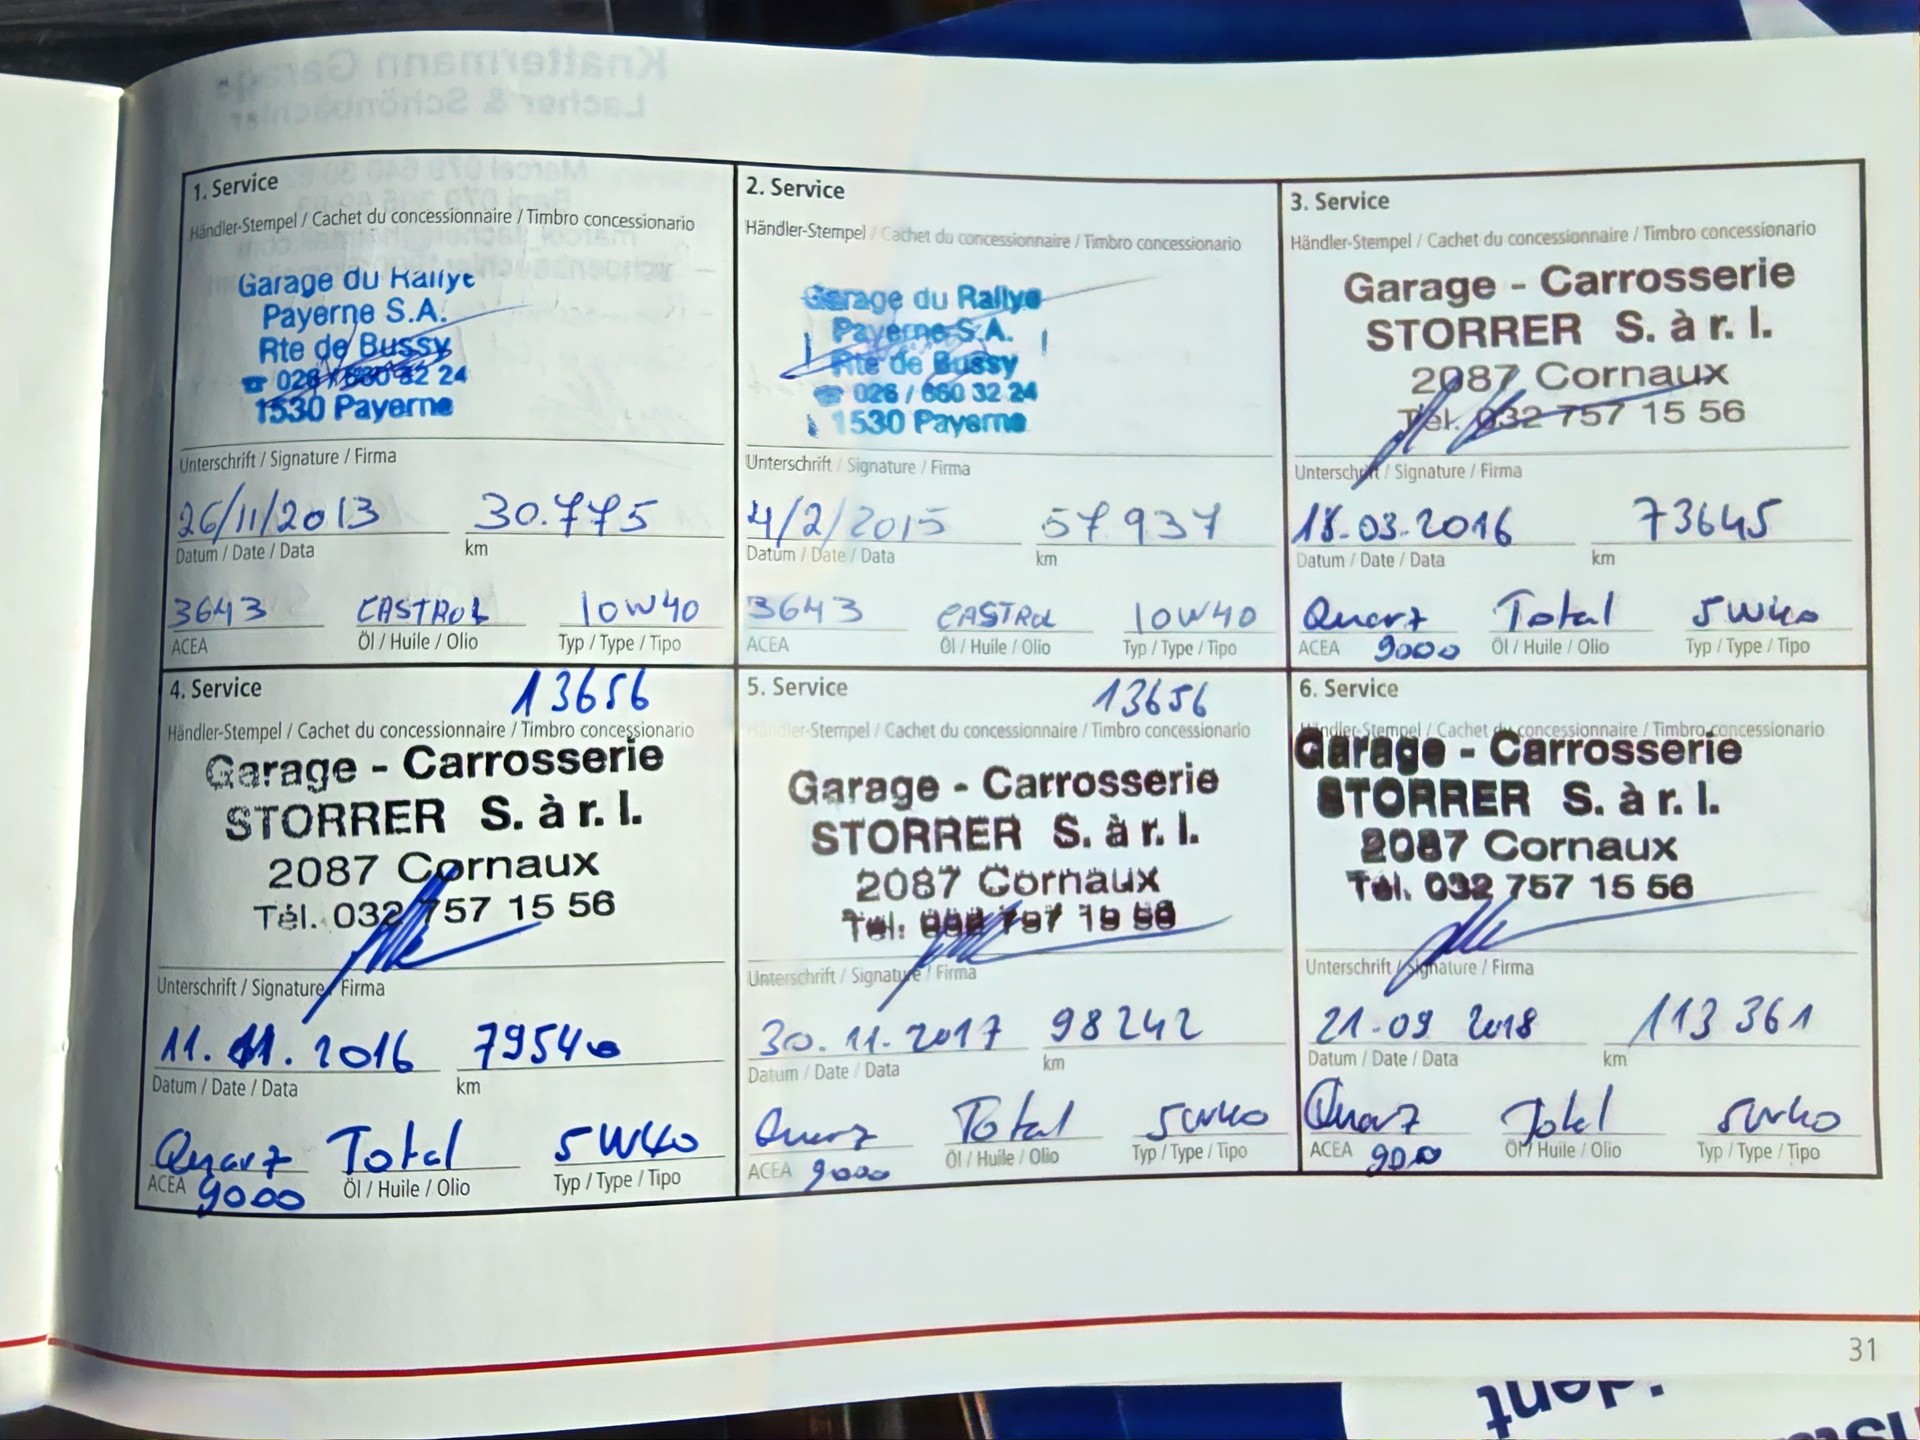 1. Service
Händler-Stempel / Cachet du concessionnaire / Timbro concessionario
Garage du Rallye
Payerne S.A.
Rte de Bussy
☎ 026 / 660 32 24
1530 Payerne
Unterschrift / Signature / Firma
26/11/2013 30.775
Datum / Date / Data km
3643 CASTROL 10W40
ACEA Öl / Huile / Olio Typ / Type / Tipo
2. Service
Händler-Stempel / Cachet du concessionnaire / Timbro concessionario
Garage du Rallye
Payerne S.A.
Rte de Bussy
☎ 026 / 660 32 24
1530 Payerne
Unterschrift / Signature / Firma
4/2/2015 57937
Datum / Date / Data km
3643 CASTROL 10W40
ACEA Öl / Huile / Olio Typ / Type / Tipo
3. Service
Händler-Stempel / Cachet du concessionnaire / Timbro concessionario
Garage - Carrosserie
STORRER S. à r. l.
2087 Cornaux
Tél. 032 757 15 56
Unterschrift / Signature / Firma
18.03.2016 73645
Datum / Date / Data km
Quarz Total 5W40
ACEA 9000 Öl / Huile / Olio Typ / Type / Tipo
4. Service 13656
Händler-Stempel / Cachet du concessionnaire / Timbro concessionario
Garage - Carrosserie
STORRER S. à r. l.
2087 Cornaux
Tél. 032 757 15 56
Unterschrift / Signature / Firma
11.11.2016 79540
Datum / Date / Data km
Quarz Total 5W40
ACEA 9000 Öl / Huile / Olio Typ / Type / Tipo
5. Service 13656
Händler-Stempel / Cachet du concessionnaire / Timbro concessionario
Garage - Carrosserie
STORRER S. à r. l.
2087 Cornaux
Tél. 032 757 15 56
Unterschrift / Signature / Firma
30.11.2017 98242
Datum / Date / Data km
Quarz Total 5W40
ACEA 9000 Öl / Huile / Olio Typ / Type / Tipo
6. Service
Händler-Stempel / Cachet du concessionnaire / Timbro concessionario
Garage - Carrosserie
STORRER S. à r. l.
2087 Cornaux
Tél. 032 757 15 56
Unterschrift / Signature / Firma
21.09 2018 113 361
Datum / Date / Data km
Quarz Total 5W40
ACEA 9000 Öl / Huile / Olio Typ / Type / Tipo
31